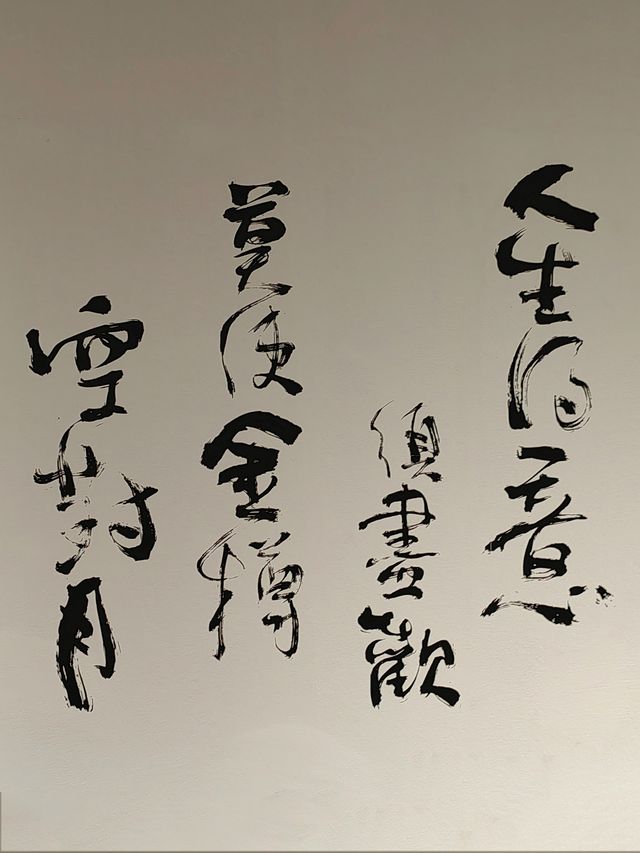 人生得意
須盡歡
莫使金樽
空對月